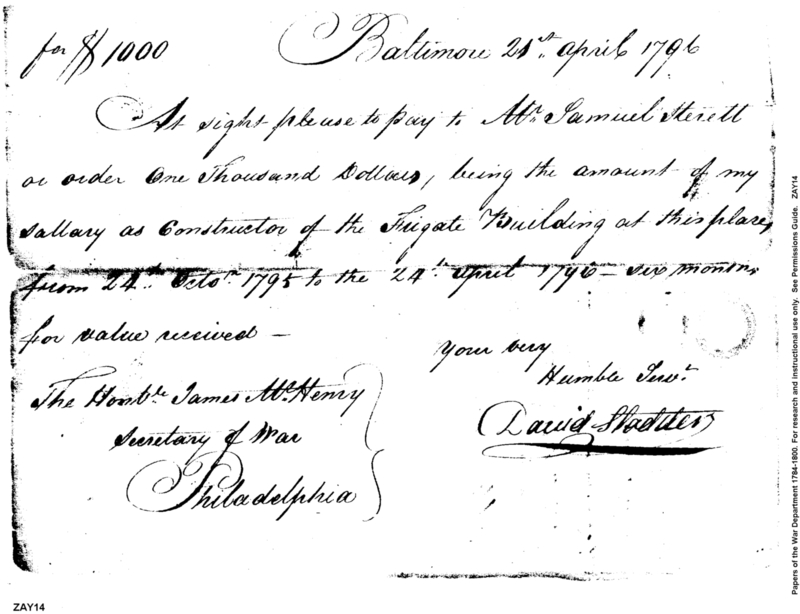 for $1000
Baltimore 21st. april 1796
At sight please to pay to Mr. Samuel Sterett
or order One Thousand Dollars, being the amount of my
sallary as Constructor of the Frigate Building at this place,
from 24th. Octor. 1795 to the 24th. april 1796 – six months
for value received –
your very
Humble Servt.
David Stodder
The Honble. James McHenry
Secretary of War
Philadelphia
ZAY14
Papers of the War Department 1784-1800. For research and instructional use only. See Permissions Guide. ZAY14